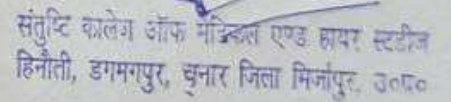 संतुष्टि कालेज ऑफ मेडिकल एण्ड हायर स्टडीज
हिनौती, डगमगपुर, चुनार जिला मिर्जापुर, उ०प्र०